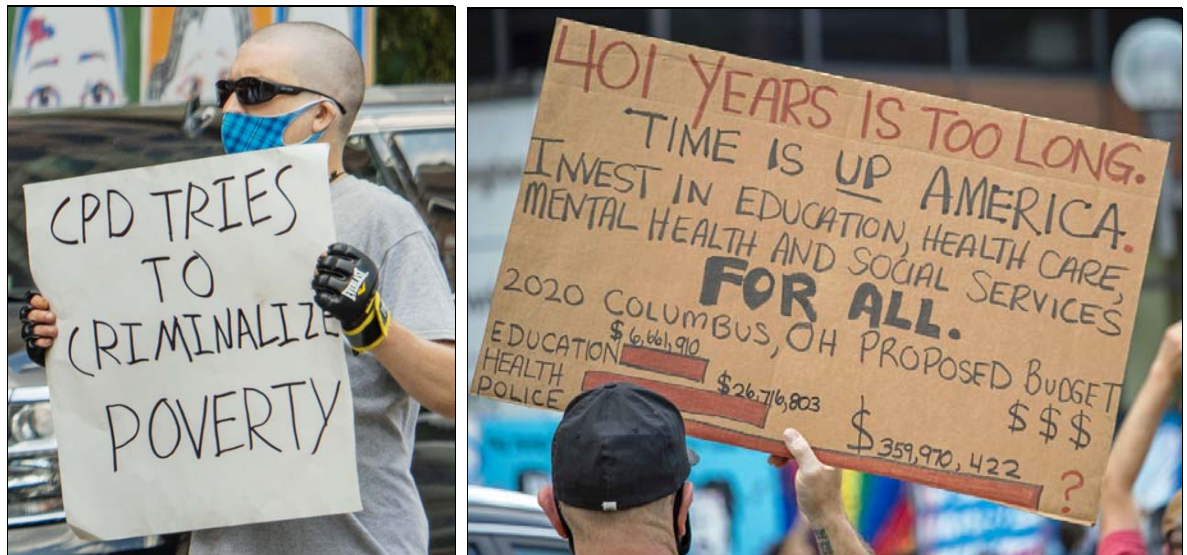 CPD TRIES
TO
CRIMINALIZE
POVERTY
EVERLAST
401 YEARS IS TOO LONG.
TIME IS UP AMERICA.
INVEST IN EDUCATION, HEALTH CARE,
MENTAL HEALTH AND SOCIAL SERVICES
FOR ALL.
2020 COLUMBUS, OH PROPOSED BUDGET
EDUCATION $6,661,910 $$$
HEALTH $26,716,803
POLICE $359,970,422 ?